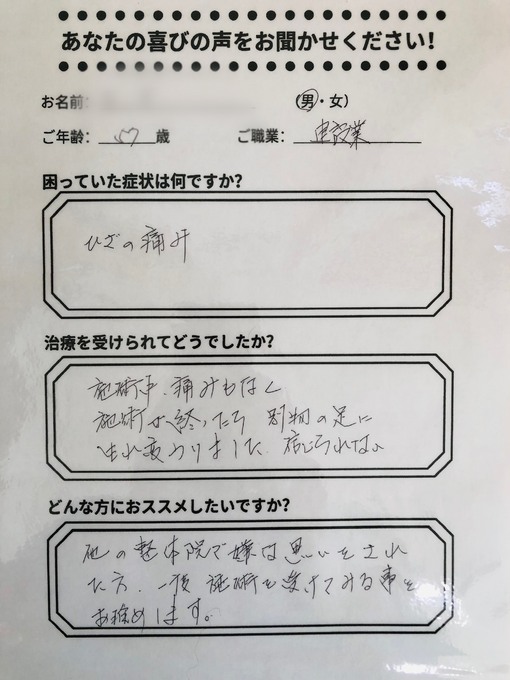 あなたの喜びの声をお聞かせください!
お名前:
(男・女)
ご年齢: 57 歳 ご職業: 建設業
困っていた症状は何ですか?
ひざの痛み
治療を受けられてどうでしたか?
施術中、痛みもなく
施術が終ったら 別物の足に
生れ変わりました 信じられない
どんな方におススメしたいですか?
他の整体院で嫌な思いをされ
た方、一度 施術を受けてみる事を
お勧めします。